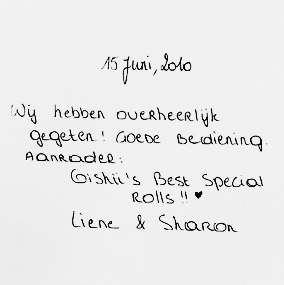 15 Juni, 2010
Wij hebben overheerlijk
gegeten! Goede Bediening.
Aanrader:
Oishii's Best Special
Rolls!! ♥
Liene & Sharon